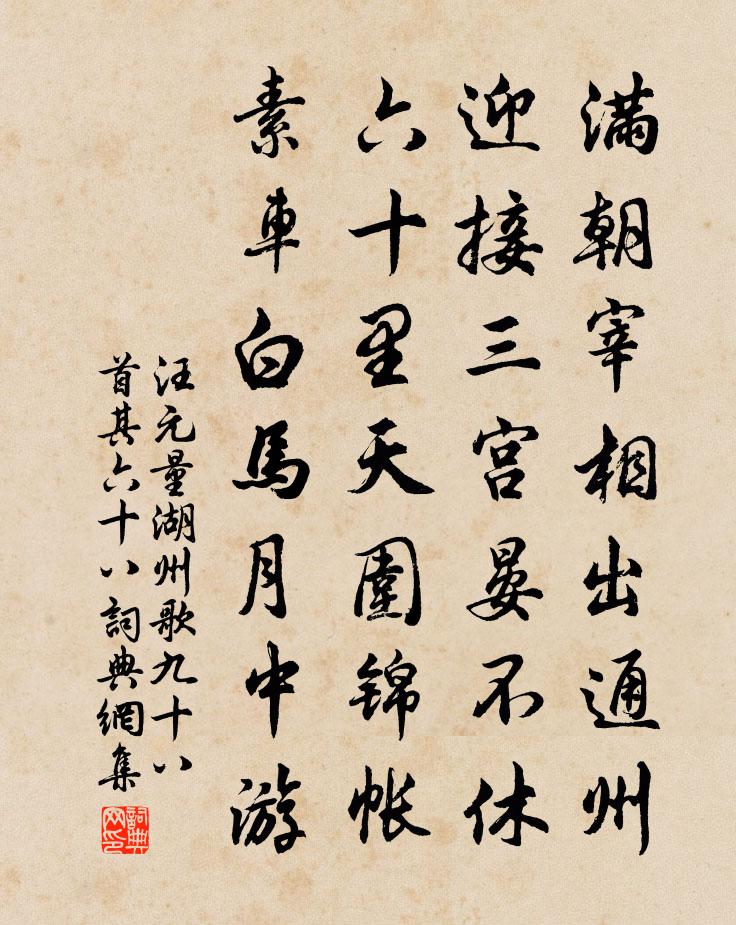 满朝宰相出通州
迎接三宫晏不休
六十里天围锦帐
素车白马月中游
汪元量湖州歌九十八
首其六十八詞典網集
詞典
网印